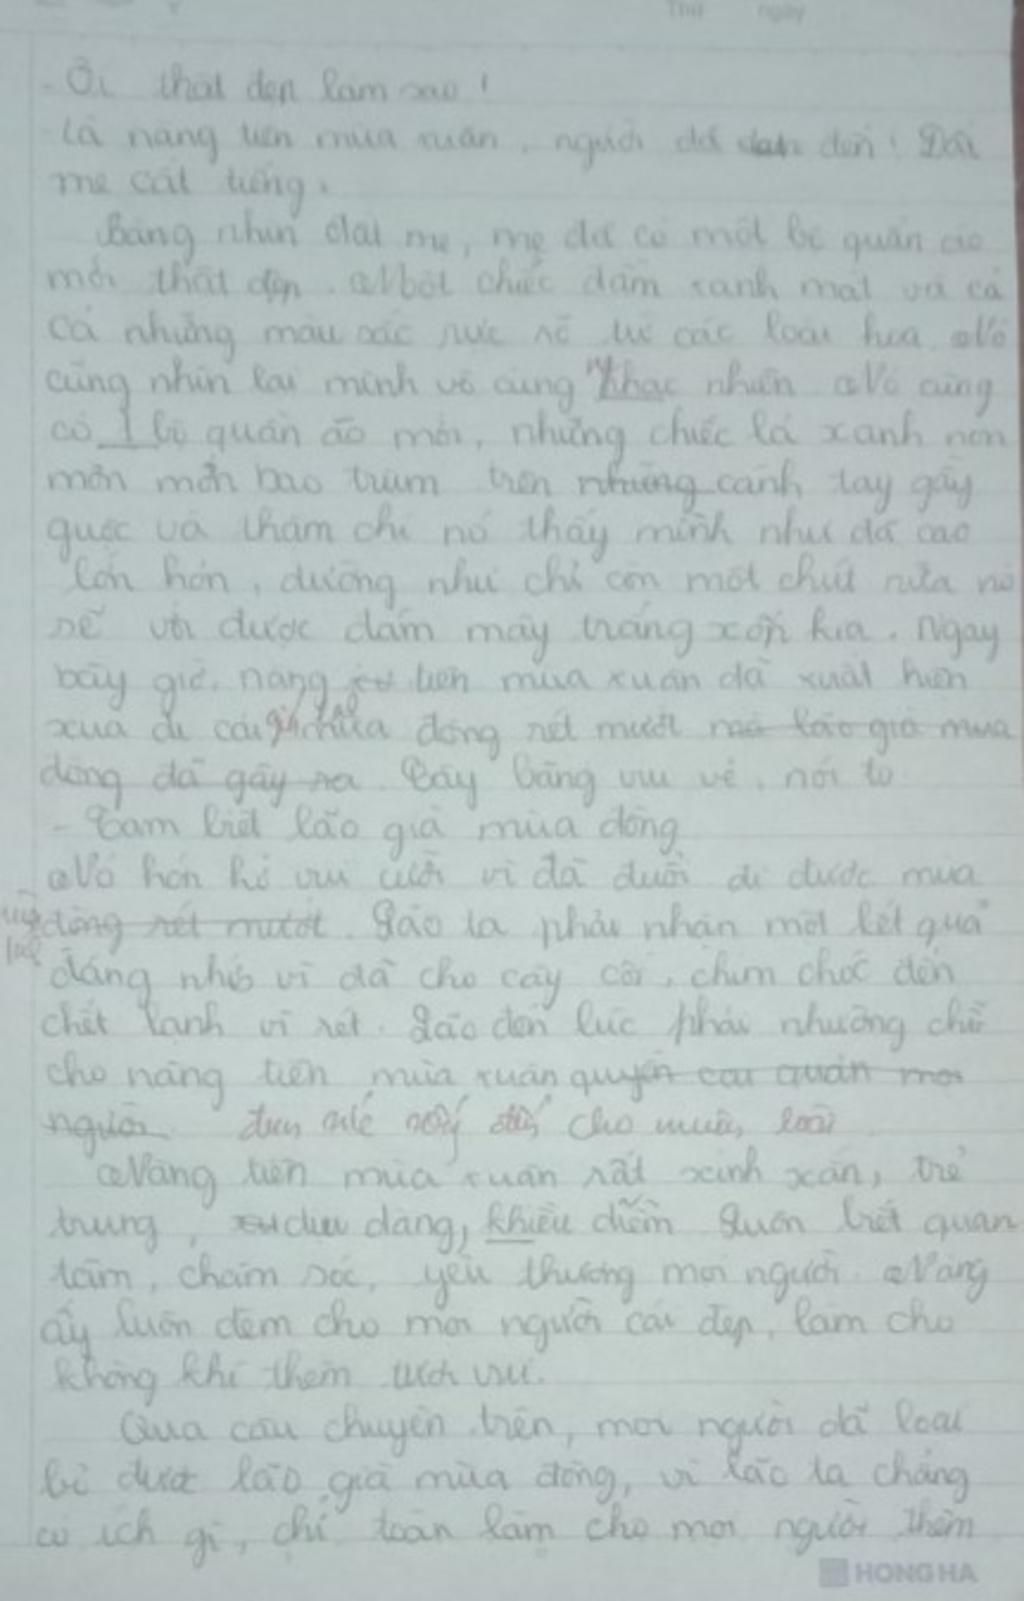 Thứ ngày
- Ôi thật đẹp làm sao!
- Là nàng tiên mùa xuân, người đã đến! Đất
mẹ cất tiếng.
Bàng nhìn đất mẹ, mẹ đã có một bộ quần áo
mới thật đẹp. Một chiếc đầm xanh mát và cả
cả những màu sắc rực rỡ từ các loài hoa. Nó
cũng nhìn lại mình vô cùng nhạc nhiên. Nó cũng
có 1 bộ quần áo mới, những chiếc lá xanh non
mơn mởn bao trùm trên những cánh tay gầy
guộc và thậm chí nó thấy mình như đã cao
lớn hơn, dường như chỉ còn một chút nữa nó
sẽ với được đám mây trắng xốp kia. Ngay
bây giờ, nàng tiên mùa xuân đã xuất hiện
xua đi cái mùa đông rét mướt mà lão già mùa
đông đã gây ra. Cây bàng vui vẻ, nói to
- Tạm biệt lão già mùa đông
Nó hớn hở vui cười vì đã đuổi đi được mùa
đông rét mướt. Lão ta phải nhận một kết quả
đáng nhớ vì đã cho cây cối, chim chóc đến
chết lạnh vì rét. Lão đến lúc phải nhường chỗ
cho nàng tiên mùa xuân quyền cai quản mọi
người cho muôn loài
Nàng tiên mùa xuân rất xinh xắn, trẻ
trung, dịu dàng, khiều diễm. Luôn biết quan
tâm, chăm sóc, yêu thương mọi người. Nàng
ấy luôn đem cho mọi người cái đẹp, làm cho
không khí thêm tươi vui.
Qua câu chuyện trên, mọi người đã loại
bỏ được lão già mùa đông, vì lão ta chẳng
có ích gì, chỉ toàn làm cho mọi người thêm
HONG HA